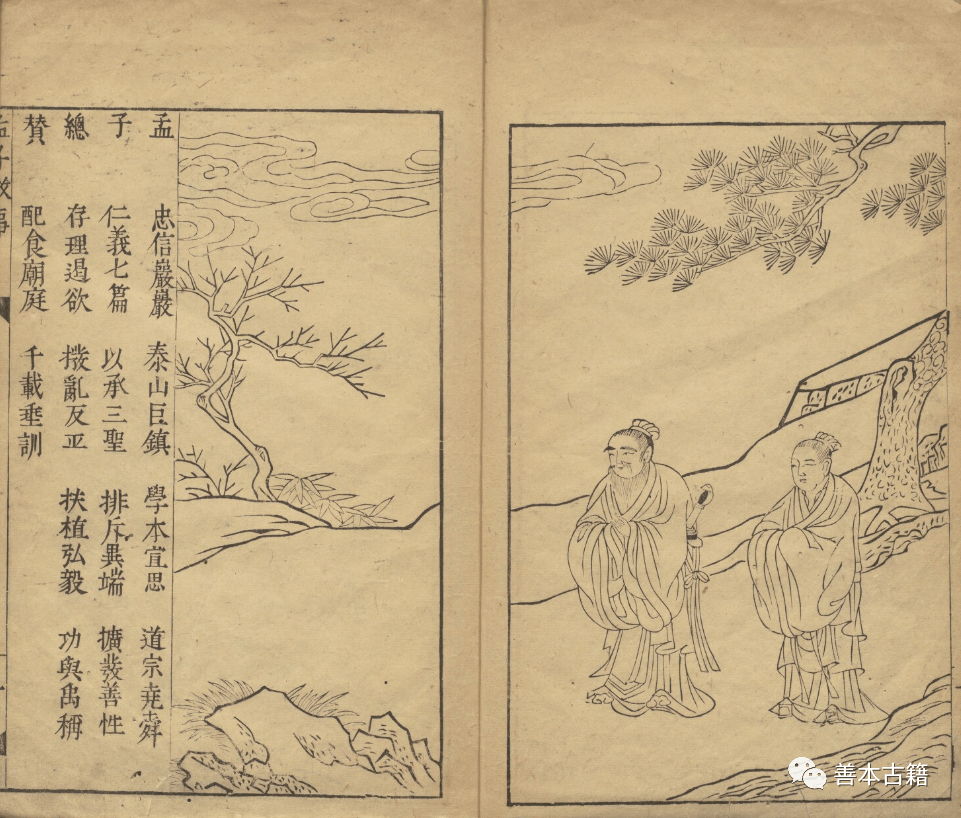 孟 忠信巖巖 泰山巨鎮 學本宣思 道宗堯舜
子 仁義七篇 以承三聖 排斥異端 擴發善性
總 存理遏欲 撥亂反正 扶植弘毅 功與禹稱
賛 配食廟庭 千載垂訓
善本古籍